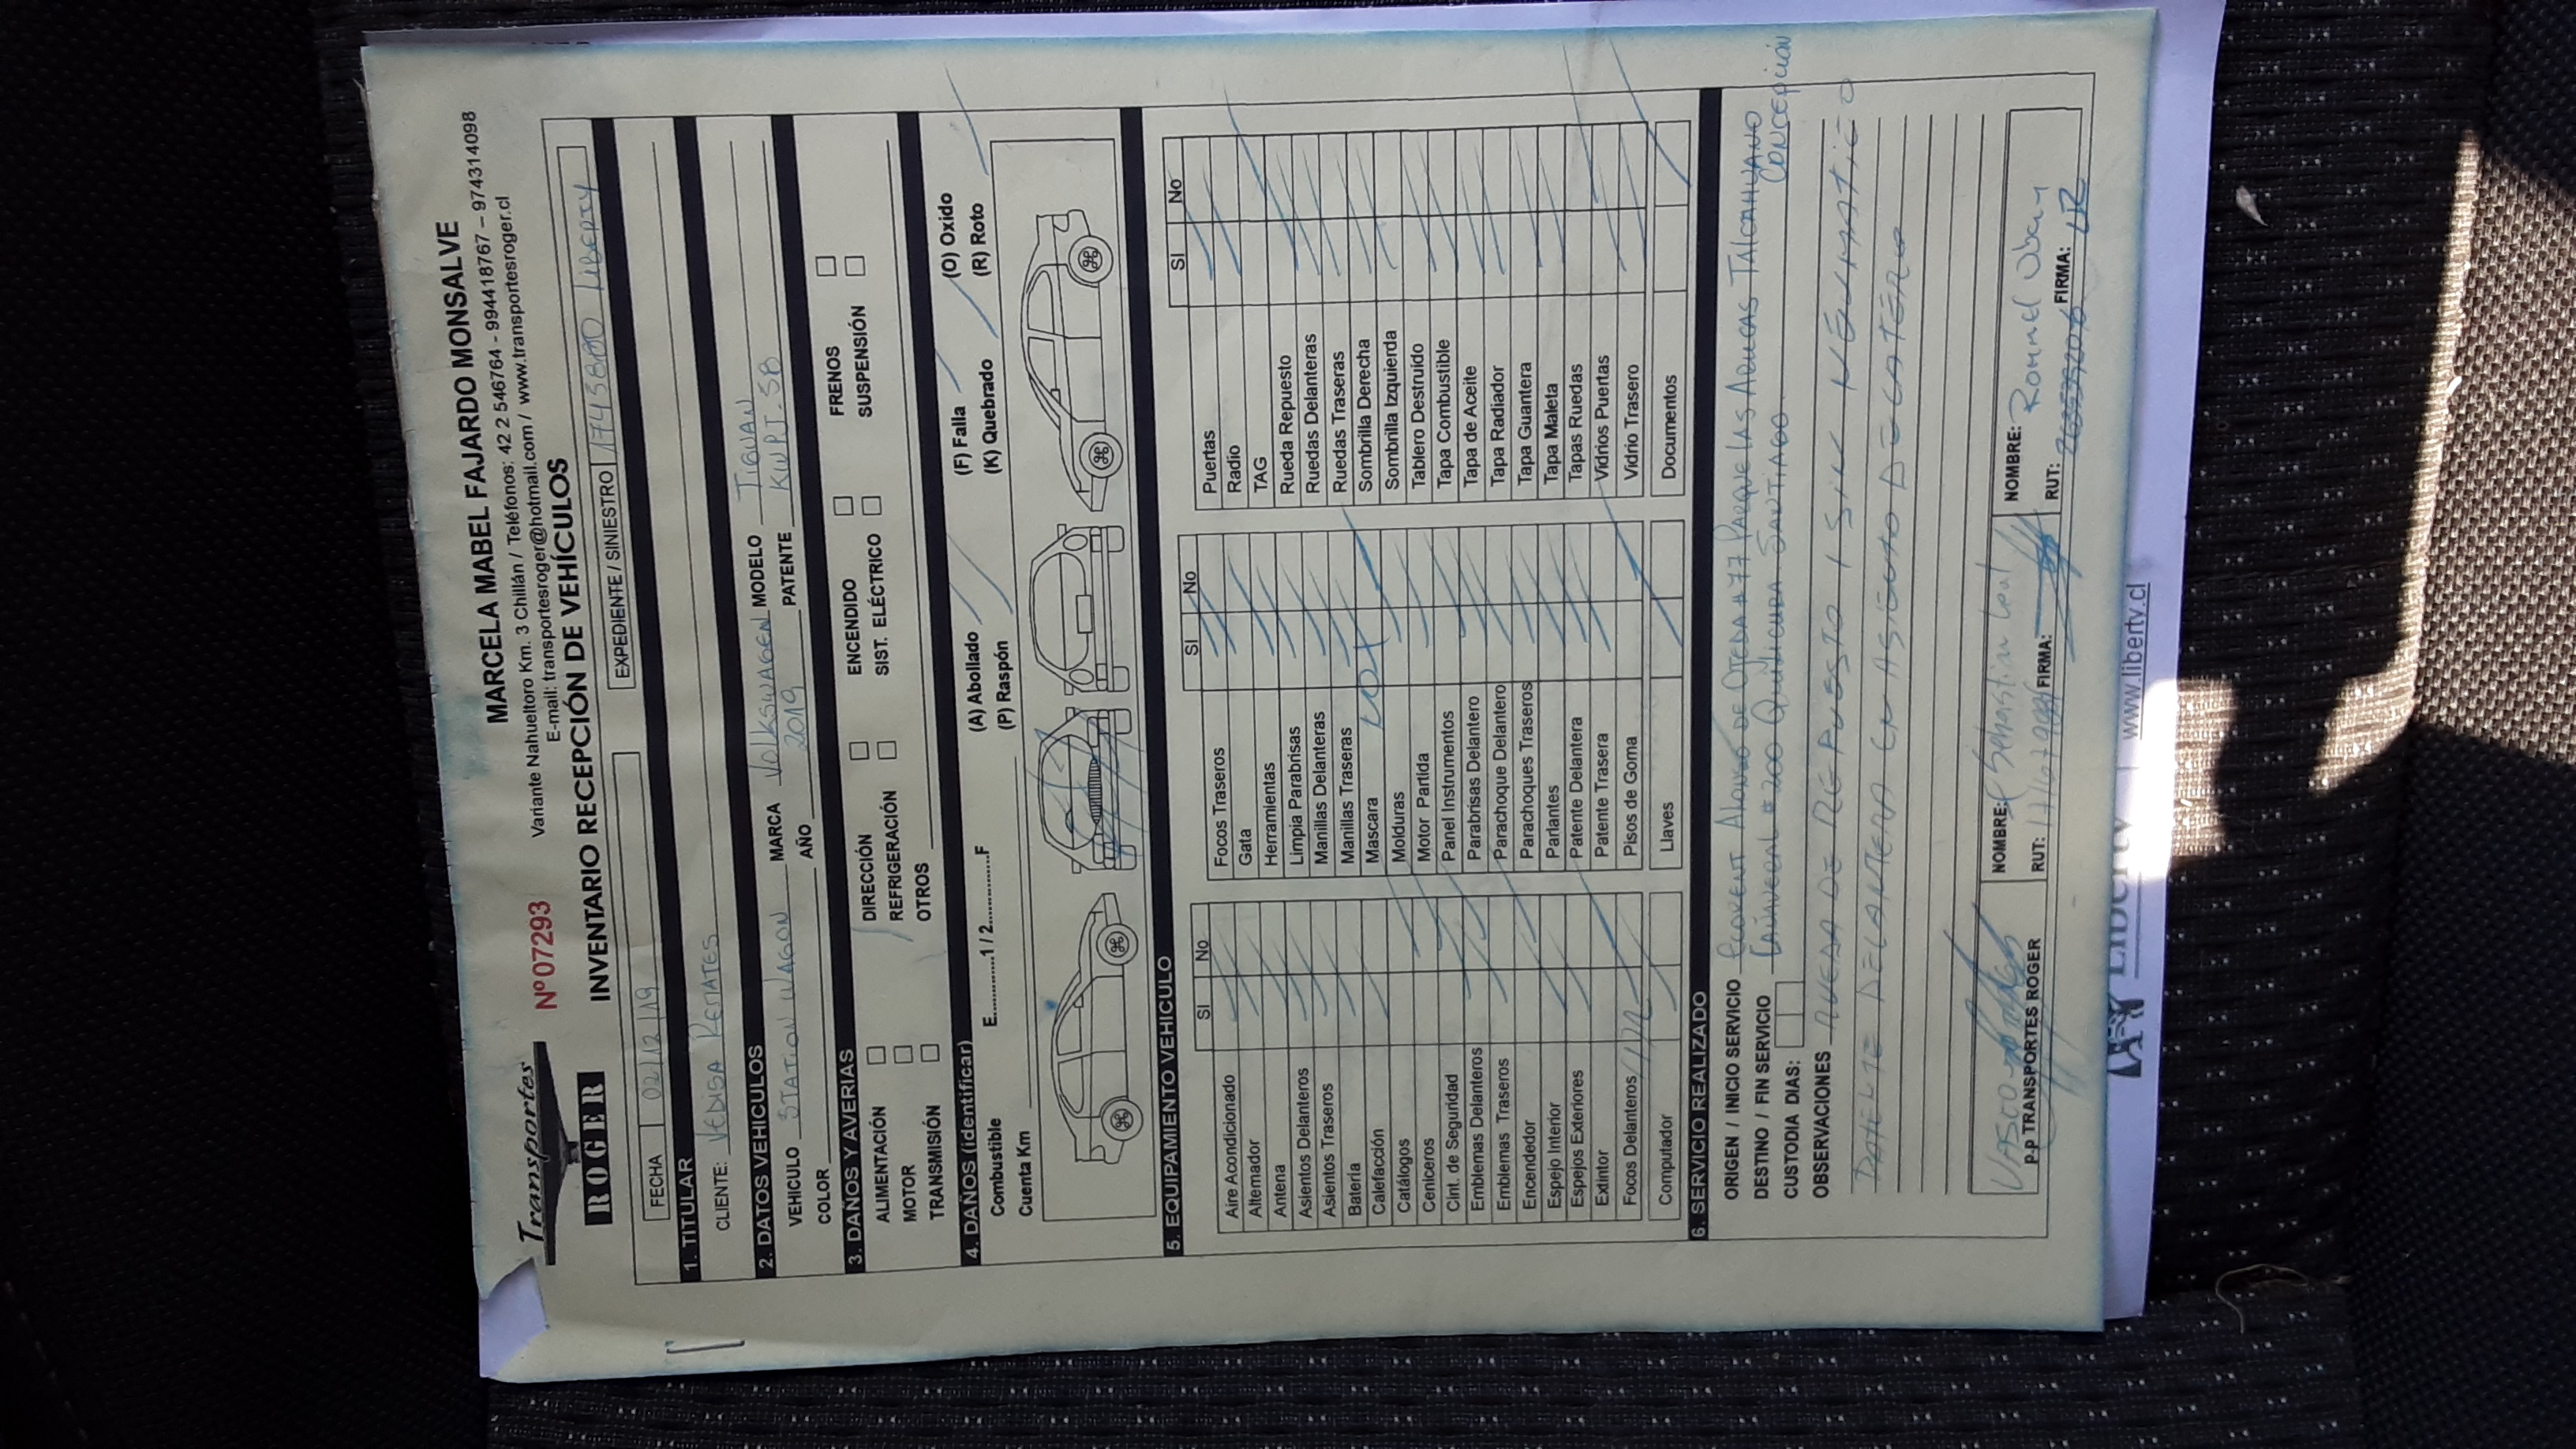 Transportes
ROGER
Nº 07293
MARCELA MABEL FAJARDO MONSALVE
Variante Nahueltoro Km. 3 Chillán / Teléfonos: 42 2 546764 - 994418767 – 974314098
E-mail: transportesroger@hotmail.com / www.transportesroger.cl
INVENTARIO RECEPCIÓN DE VEHÍCULOS
FECHA 02/12/19
EXPEDIENTE / SINIESTRO LIBERTY
1. TITULAR
CLIENTE: VEDISA REMATES
2. DATOS VEHICULOS
VEHICULO STATION WAGON MARCA VOLKSWAGEN MODELO TIGUAN
COLOR AÑO 2019 PATENTE
3. DAÑOS Y AVERIAS
ALIMENTACIÓN DIRECCIÓN ENCENDIDO FRENOS
MOTOR REFRIGERACIÓN SIST. ELÉCTRICO SUSPENSIÓN
TRANSMISIÓN OTROS
4. DAÑOS (Identificar)
Combustible E............1 / 2...............F (A) Abollado (F) Falla (O) Oxido
Cuenta Km (P) Raspón (K) Quebrado (R) Roto
5. EQUIPAMIENTO VEHICULO
SI No SI No SI No
Aire Acondicionado Focos Traseros Puertas
Alternador Gata Radio
Antena Herramientas TAG
Asientos Delanteros Limpia Parabrisas Rueda Repuesto
Asientos Traseros Manillas Delanteras Ruedas Delanteras
Batería Manillas Traseras Ruedas Traseras
Calefacción Mascara Sombrilla Derecha
Catálogos Molduras Sombrilla Izquierda
Ceniceros Motor Partida Tablero Destruido
Cint. de Seguridad Panel Instrumentos Tapa Combustible
Emblemas Delanteros Parabrisas Delantero Tapa de Aceite
Emblemas Traseros Parachoque Delantero Tapa Radiador
Encendedor Parachoques Traseros Tapa Guantera
Espejo Interior Parlantes Tapa Maleta
Espejos Exteriores Patente Delantera Tapas Ruedas
Extintor Patente Trasera Vidrios Puertas
Focos Delanteros Pisos de Goma Vidrio Trasero
Computador Llaves Documentos
6. SERVICIO REALIZADO
ORIGEN / INICIO SERVICIO ALONSO DE #77 PARQUE LAS TALCAHUANO
CONCEPCIÓN
DESTINO / FIN SERVICIO #200 QUILICURA SANTIAGO.
CUSTODIA DIAS:
OBSERVACIONES RUEDA DE REPUESTO 1 SIN NEUMATICO
PATENTE DELANTERA EN ASIENTO DELANTERO
VASCO
p.p TRANSPORTES ROGER
NOMBRE: Sebastian Leal
RUT: FIRMA:
NOMBRE: Rommel
RUT: FIRMA:
www.liberty.cl